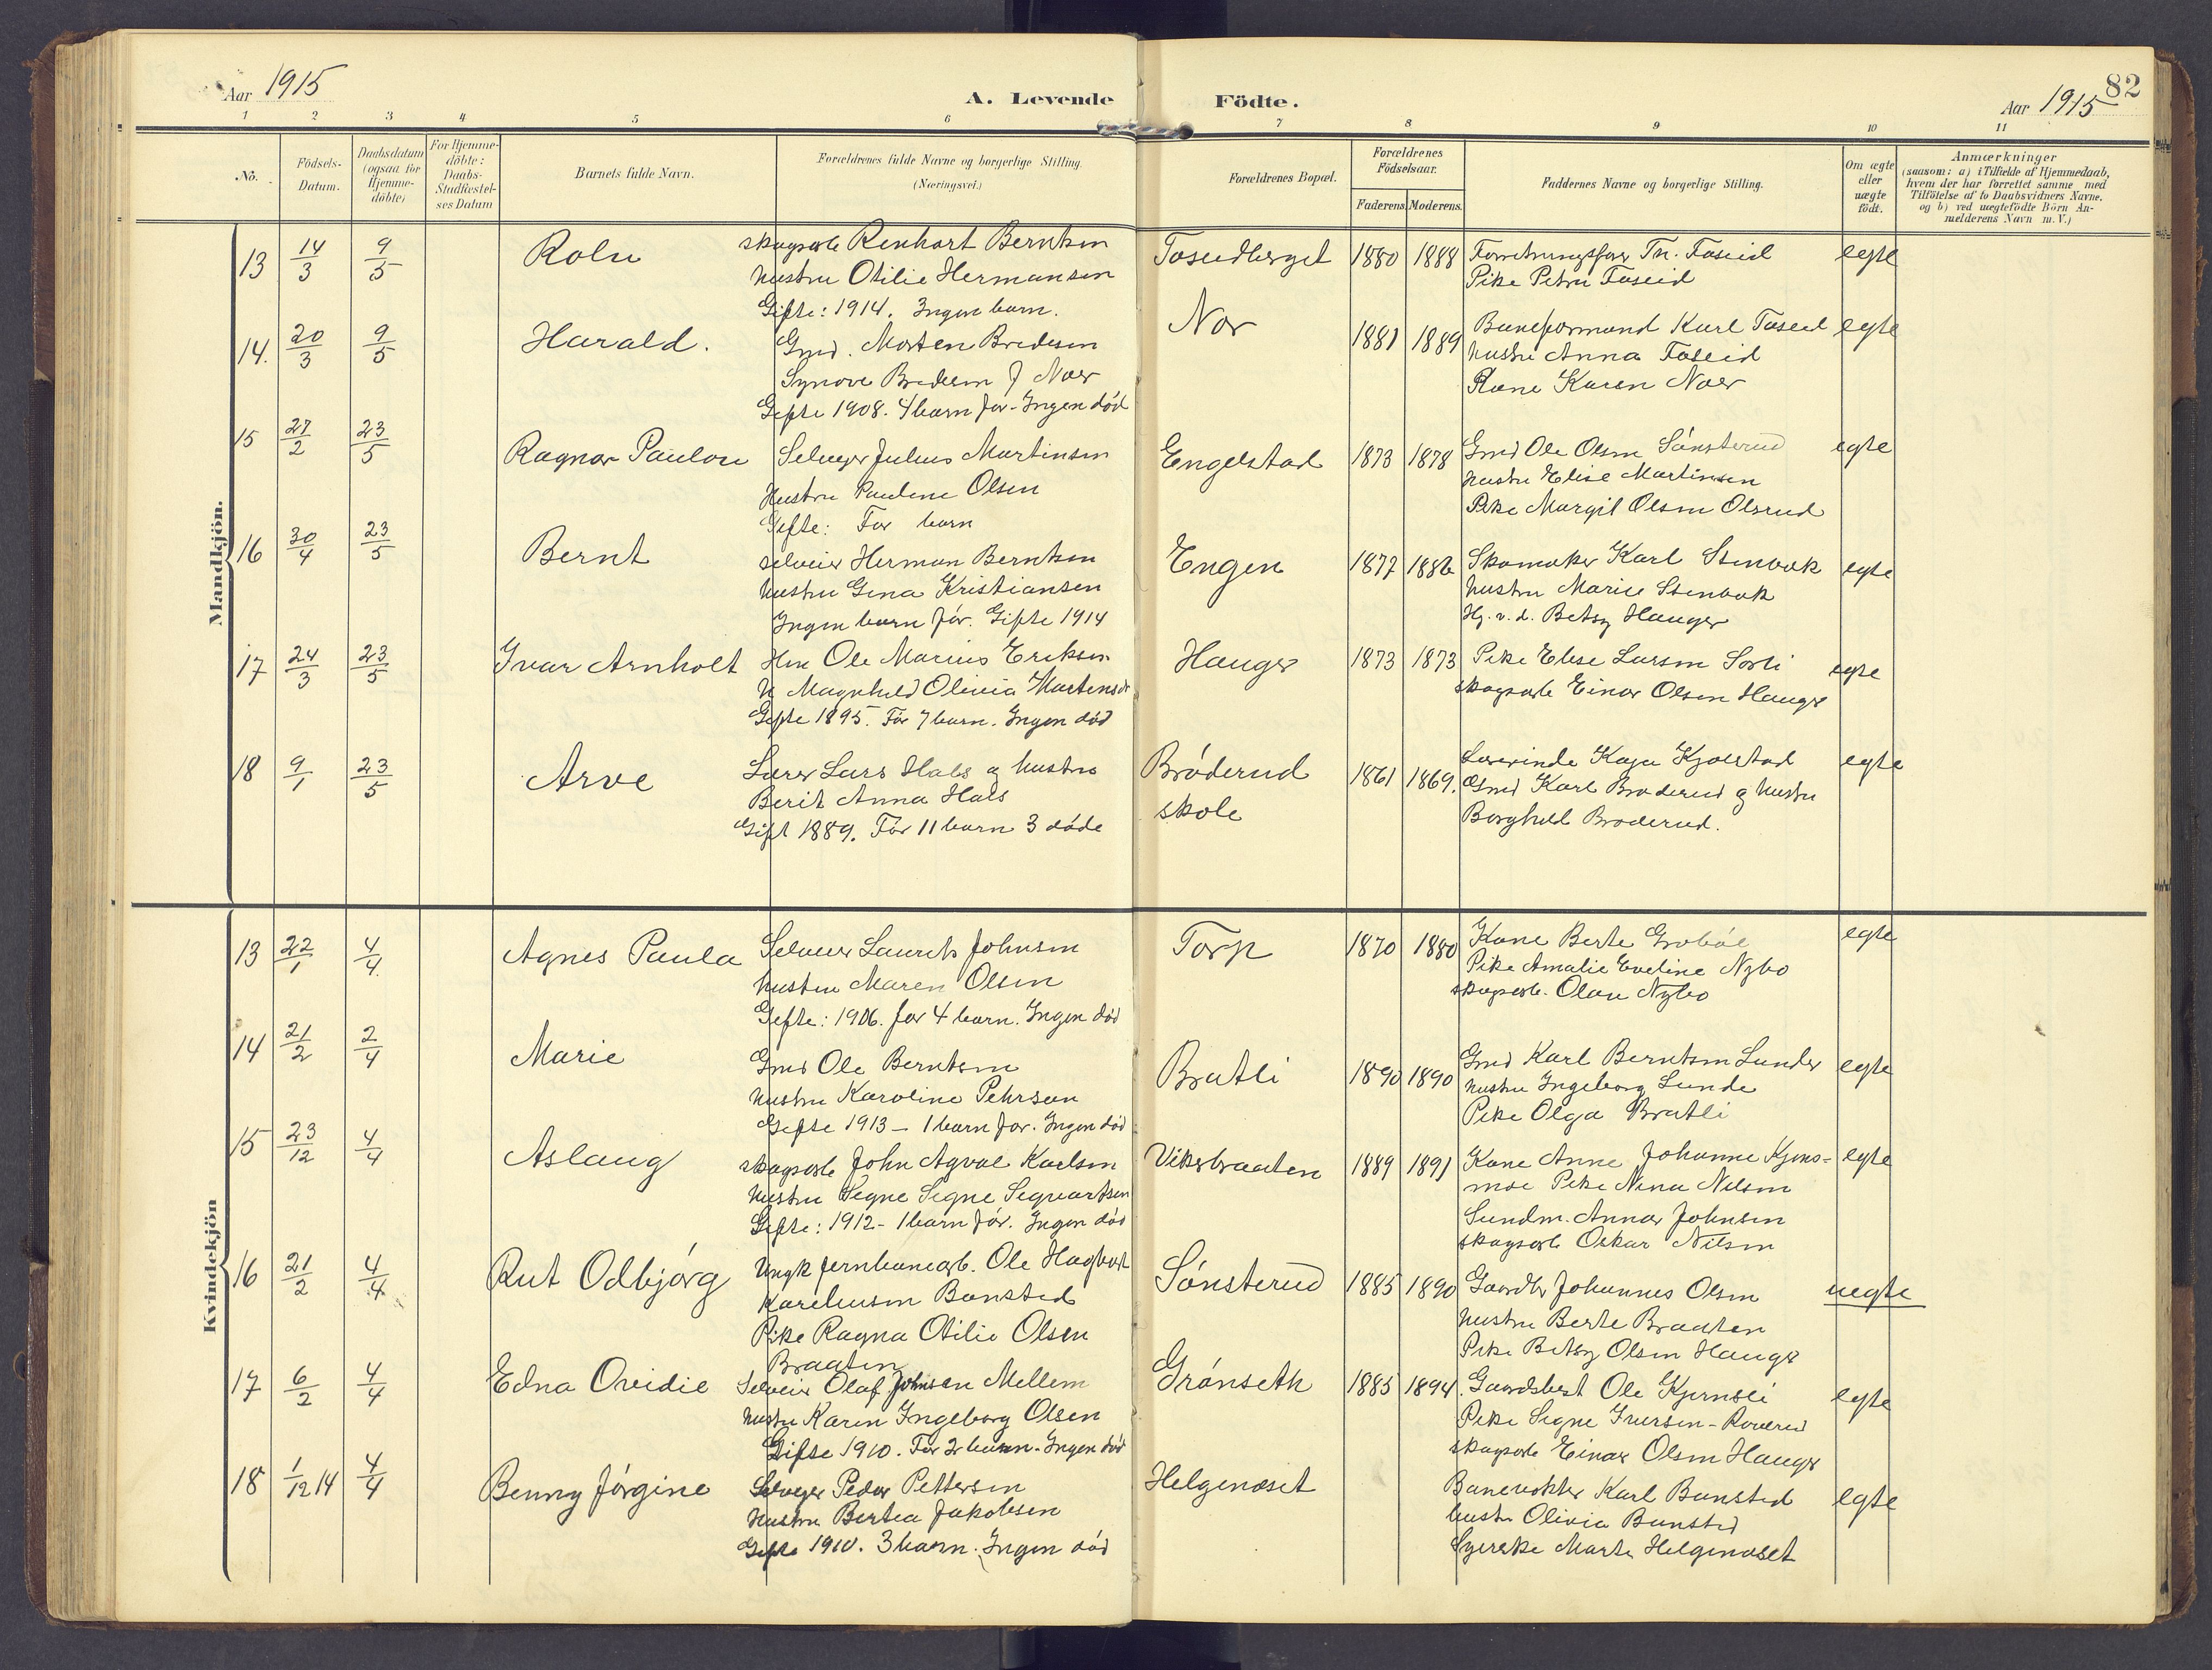 Aar 1915
A. Levende Födte.
82
Aar 1915
1 2 3 4 5 6 7 8 9 10 11
No.
Födsels-Datum.
Daabsdatum (ogsaa for Hjemme-döbte)
For Hjemme-döbte: Daabs-Stadfæstel-ses Datum
Barnets fulde Navn.
Forældrenes fulde Navne og borgerlige Stilling. (Næringsvei.)
Forældrenes Bopæl.
Forældrenes Födselsaar.
Faderens. Moderens.
Faddernes Navne og borgerlige Stilling.
Om ægte eller uægte födt.
Anmærkninger
(saasom: a) i Tilfælde af Hjemmedaab,
hvem der har forrettet samme med
Tilföielse af to Daabsvidners Navne,
og b) ved uægtefödte Börn An-
melderens Navn m. V.)
Mandkjön.
13 14/3 9/5
skogsarb Renhart Berntsen
Hustru Otilie Hermansen
Gifte: 1914. Ingen barn.
1880 1888
Tn. Foseid
Pike Petra Foseid
egte
14. 20/3 9/5 Harald.
Gmd. Morten Bredesen
Synove Bredesen f Noer
Gifte 1908. 4 barn før - Ingen død
Nor
1881 1889
Baneformand Karl Foseid
Hustru Anna Foseid
Kone Karen Noer
egte
15 27/2 23/5 Ragnar Paulou
Selveyer Julius Martinsen
Hustru Pauline Olsen
Gifte: Før barn
Engelstad
1873 1878
Gmd Ole Olsen Sönsterud
Hustru Elise Martinsen
Pike Margit Olsen Olsrud
egte
16 30/4 23/5 Bernt
selveier Herman Berntsen
Hustru Gina Kristiansen
Ingen barn før. Gifte 1914
Engen
1877 1886
Skomaker Karl Stenbak
Hustru Marie Stenbak
Hj. v. d. Betsy Hauger
egte
17 24/3 23/5 Ivar Arnholt
Hm Ole Marius Eriksen
H Magnhild Olivia Martensdr
Gifte 1895. Før 7 barn. Ingen død
Hauger
1873 1873
Pike Elise Larsen Sorli
skogsarb Einar Olsen Hauger
egte
18 9/1 23/5 Arve
Lærer Lars Hals og Hustru
Berit Anna Hals
Gift 1889. Før 11 barn 3 døde
Bröderud
skole
1861 1869.
Lærerinde Kaja Kjolstad
Gmd Karl Broderud og Hustru
Borghild Broderud.
egte
Kvindekjön
13 22/1 4/4 Agnes Paula
Selveier Laurits Johnsen
Hustru Maren Olsen
Gifte: 1906. før 4 barn. Ingen død
Torp
1870 1880
Kone Berte Grobøl
Pike Amalie Eveline Nybo
skogsarb. Olau Nybo
egte
14 21/2 2/4 Marie
Gmd Ole Berntsen
Hustru Karoline Pehrson
Gifte 1913 - 1 barn før. Ingen død
Bratli
1890 1890
Gmd Karl Berntsen Lunder
Hustru Ingeborg Lunde
Pike Olga Bratli
egte
15 23/12 4/4 Aslaug
skogsarb John Agval Karlsen
Hustru Signe Signe Sigvartsen
Gifte: 1912 - 1 barn før. Ingen død
Viksbraaten
1889 1891
Kone Anne Johanne Kjøns=
moe Pike Nina Nilsen
Sundm. Annar Johnsen
skogsarb Oskar Nilsen
egte
16 21/2 4/4 Rut Odbjörg
Ungk jernbanearb. Ole Hagbart
Kareliusen Bansted
Pike Ragna Otilie Olsen
Braaten
Sönsterud
1885 1890
Gaardbr Johannes Olsen
Hustru Berte Braaten
Pike Betsy Olsen Hauger
uegte
17 6/2 4/4 Edna Ovidie
Selveier Olaf Johnsen Mellem
Hustru Karen Ingeborg Olsen
Gifte 1910. Før 2 barn. Ingen död
Grönseth
1885 1894.
Gaardsbest Ole Kjernsli
Pike Signe Iversen - Roverud
skogsarb Einar Olsen Hauger
egte
18 1/12 14 4/4 Benny Jörgine
Selveyer Peder Pettersen
Hustru Bertea Jakobsen
Gifte 1910. 3 barn. Ingen död
Helgenæset
Banevokter Karl Bansted
Hustr Olivia Bansted
Syerske Marte Helgenæset
egte